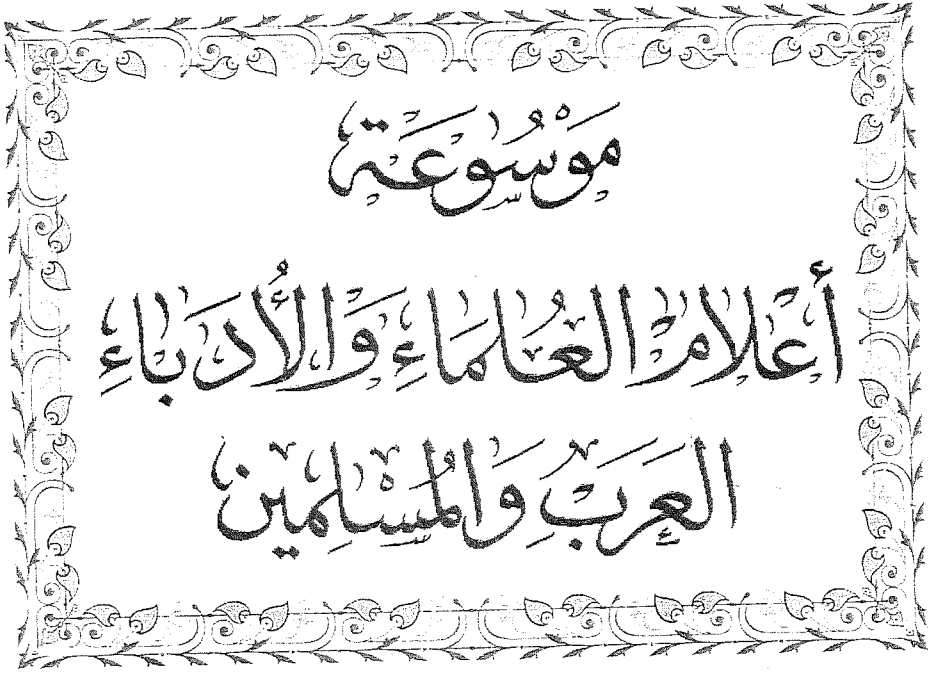 مَوْسُوعَة
أَعْلَامِ الْعُلَمَاءِ وَالْأُدَبَاءِ
الْعَرَبِ وَالْمُسْلِمِين